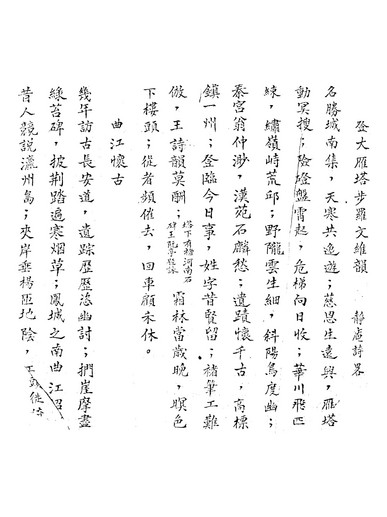 登大雁塔步羅文維韻　靜庵詩畧
名勝城南集，天寒共遨遊；慈恩生遠興，雁塔
動冥搜；險磴盤霄起，危梯向日收；華川飛匹
練，繡嶺峙荒邱；野隴雲生細，斜陽鳥度幽；
秦宮翁仲渺，漢苑石麟愁；遺蹟懷千古，高標
鎮一州；登臨今日事，姓字昔賢留；褚筆工難
倣，王詩韻莫酬；塔下有褚河南石 霜林當歲晚，暝色
下樓頭；從者頻催去，回車顧未休。
曲江懷古
幾年訪古長安道，遺踪歷歷滂幽討；捫崖摩盡
綠苔碑，披荆踏遍寒烟草；鳳城之南曲江沼
昔人競說瀛州島；夾岸垂楊匝地陰，